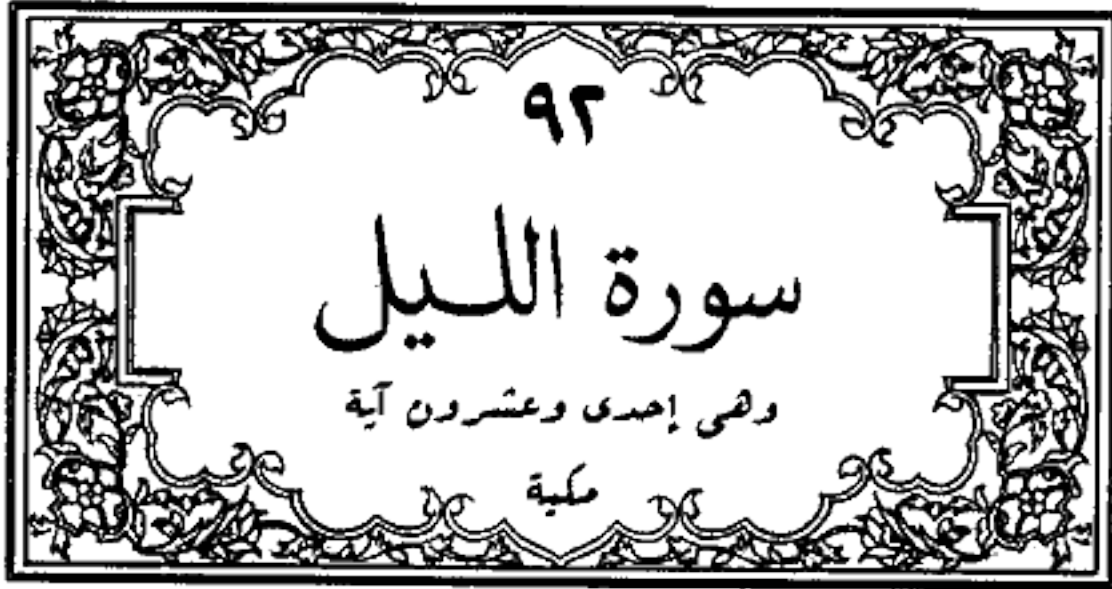 ٩٢
سورة الليل
وهى إحدى وعشرون آية
مكية